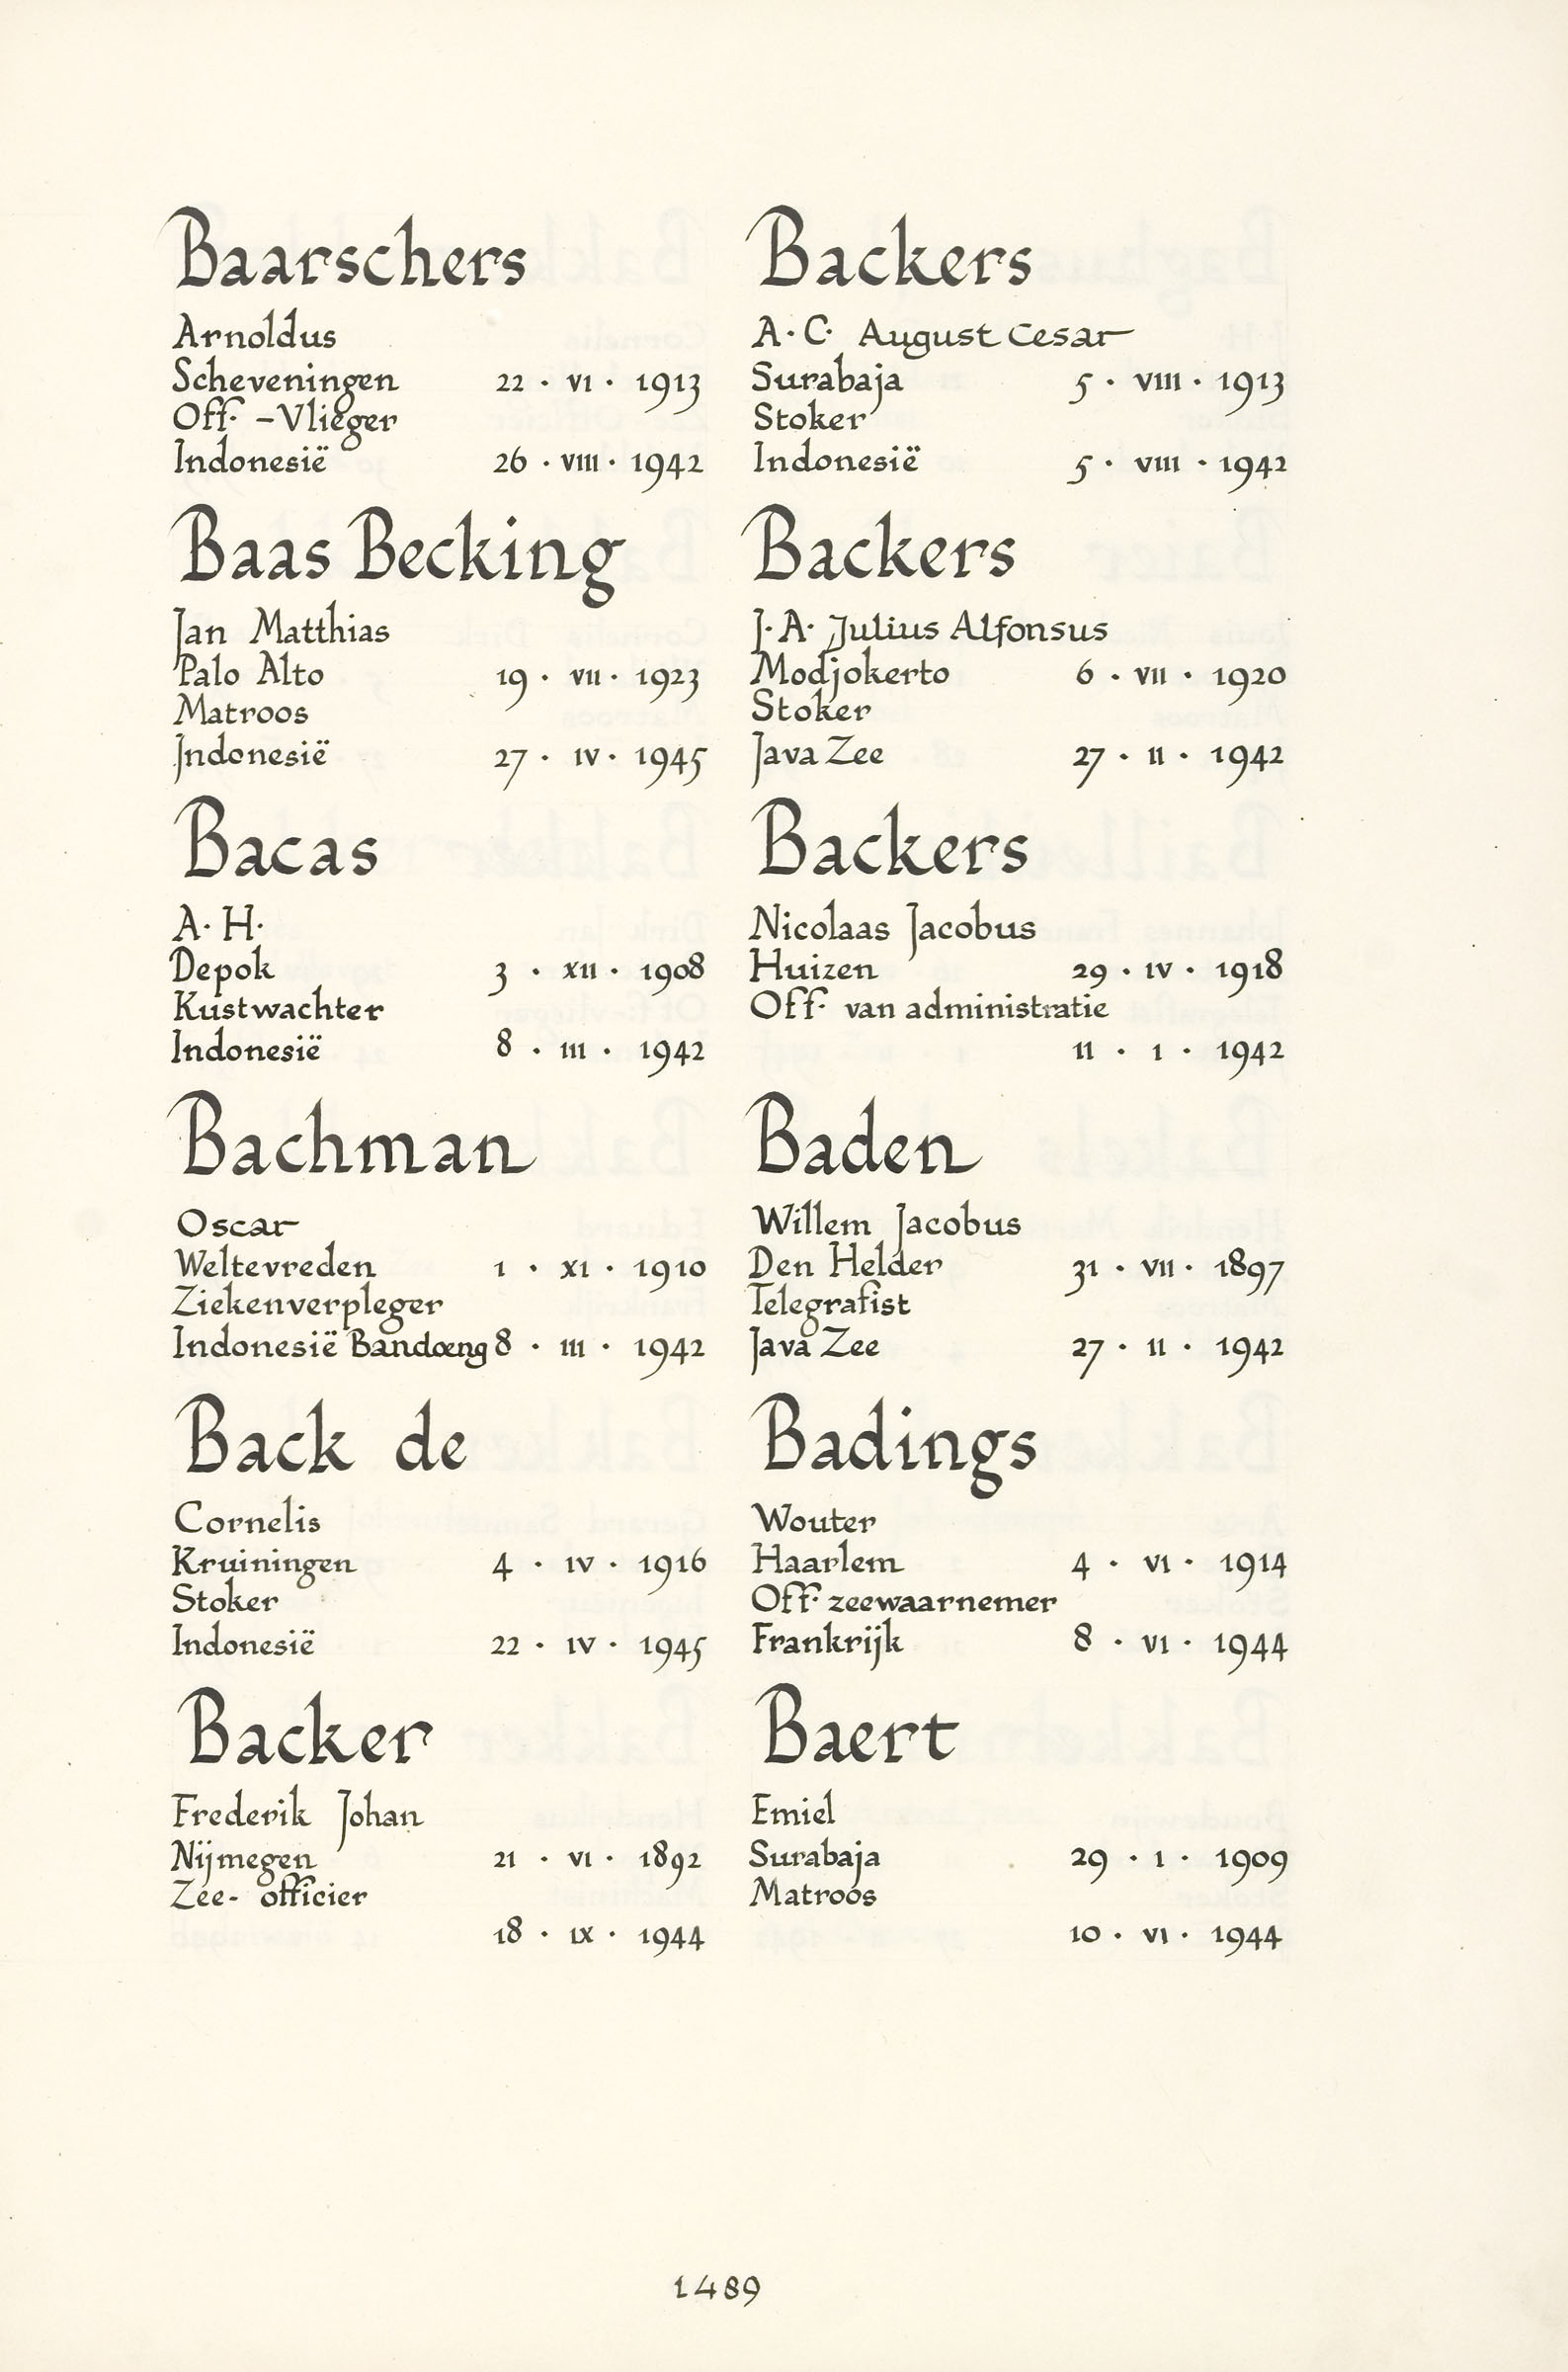 Baarschers
Arnoldus
Scheveningen 22 · VI · 1913
Off. - Vlieger
Indonesië 26 · VIII · 1942
Baas Becking
Jan Matthias
Palo Alto 19 · VII · 1923
Matroos
Indonesië 27 · IV · 1945
Bacas
A. H.
Depok 3 · XII · 1908
Kustwachter
Indonesië 8 · III · 1942
Bachman
Oscar
Weltevreden 1 · XI · 1910
Ziekenverpleger
Indonesië Bandoeng 8 · III · 1942
Back de
Cornelis
Kruiningen 4 · IV · 1916
Stoker
Indonesië 22 · IV · 1945
Backer
Frederik Johan
Nijmegen 21 · VI · 1892
Zee- officier
18 · IX · 1944
Backers
A. C. August Cesar
Surabaja 5 · VIII · 1913
Stoker
Indonesië 5 · VIII · 1942
Backers
J. A. Julius Alfonsus
Modjokerto 6 · VII · 1920
Stoker
Java Zee 27 · II · 1942
Backers
Nicolaas Jacobus
Huizen 29 · IV · 1918
Off. van administratie
11 · I · 1942
Baden
Willem Jacobus
Den Helder 31 · VII · 1897
Telegrafist
Java Zee 27 · II · 1942
Badings
Wouter
Haarlem 4 · VI · 1914
Off. zeewaarnemer
Frankrijk 8 · VI · 1944
Baert
Emiel
Surabaja 29 · I · 1909
Matroos
10 · VI · 1944
1489